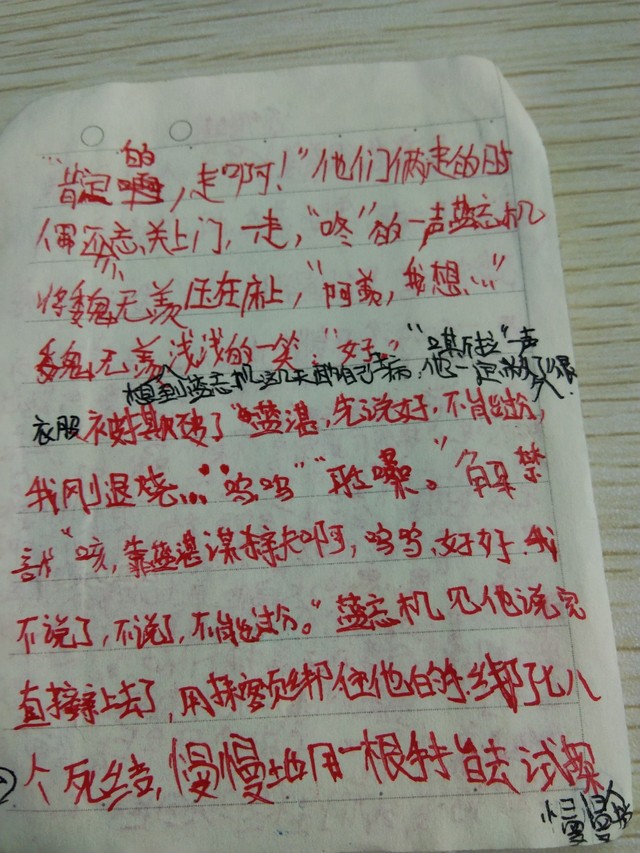 的
“肯定啊，走啊！”他们俩走的时
候还不忘关上门，一走，“咚”的一声蓝忘机
将魏无羡压在床上，“阿羡，我想…”
魏无羡浅浅的一笑“好。”“嘶拉”声
想到蓝忘机这几天助自己病，他一定
衣服被撕破了“蓝湛，先说好，不能过分，
我刚退烧…”呜呜”“聒噪。”解禁
言“咳，靠蓝湛谋杀夫啊，呜呜，好好，我
不说了，不说了，不能过分。”蓝忘机见他说完
直接亲上去了，用抹额绑住他的手，绑了七八
个死结，慢慢地用一根手指去试探
慢慢